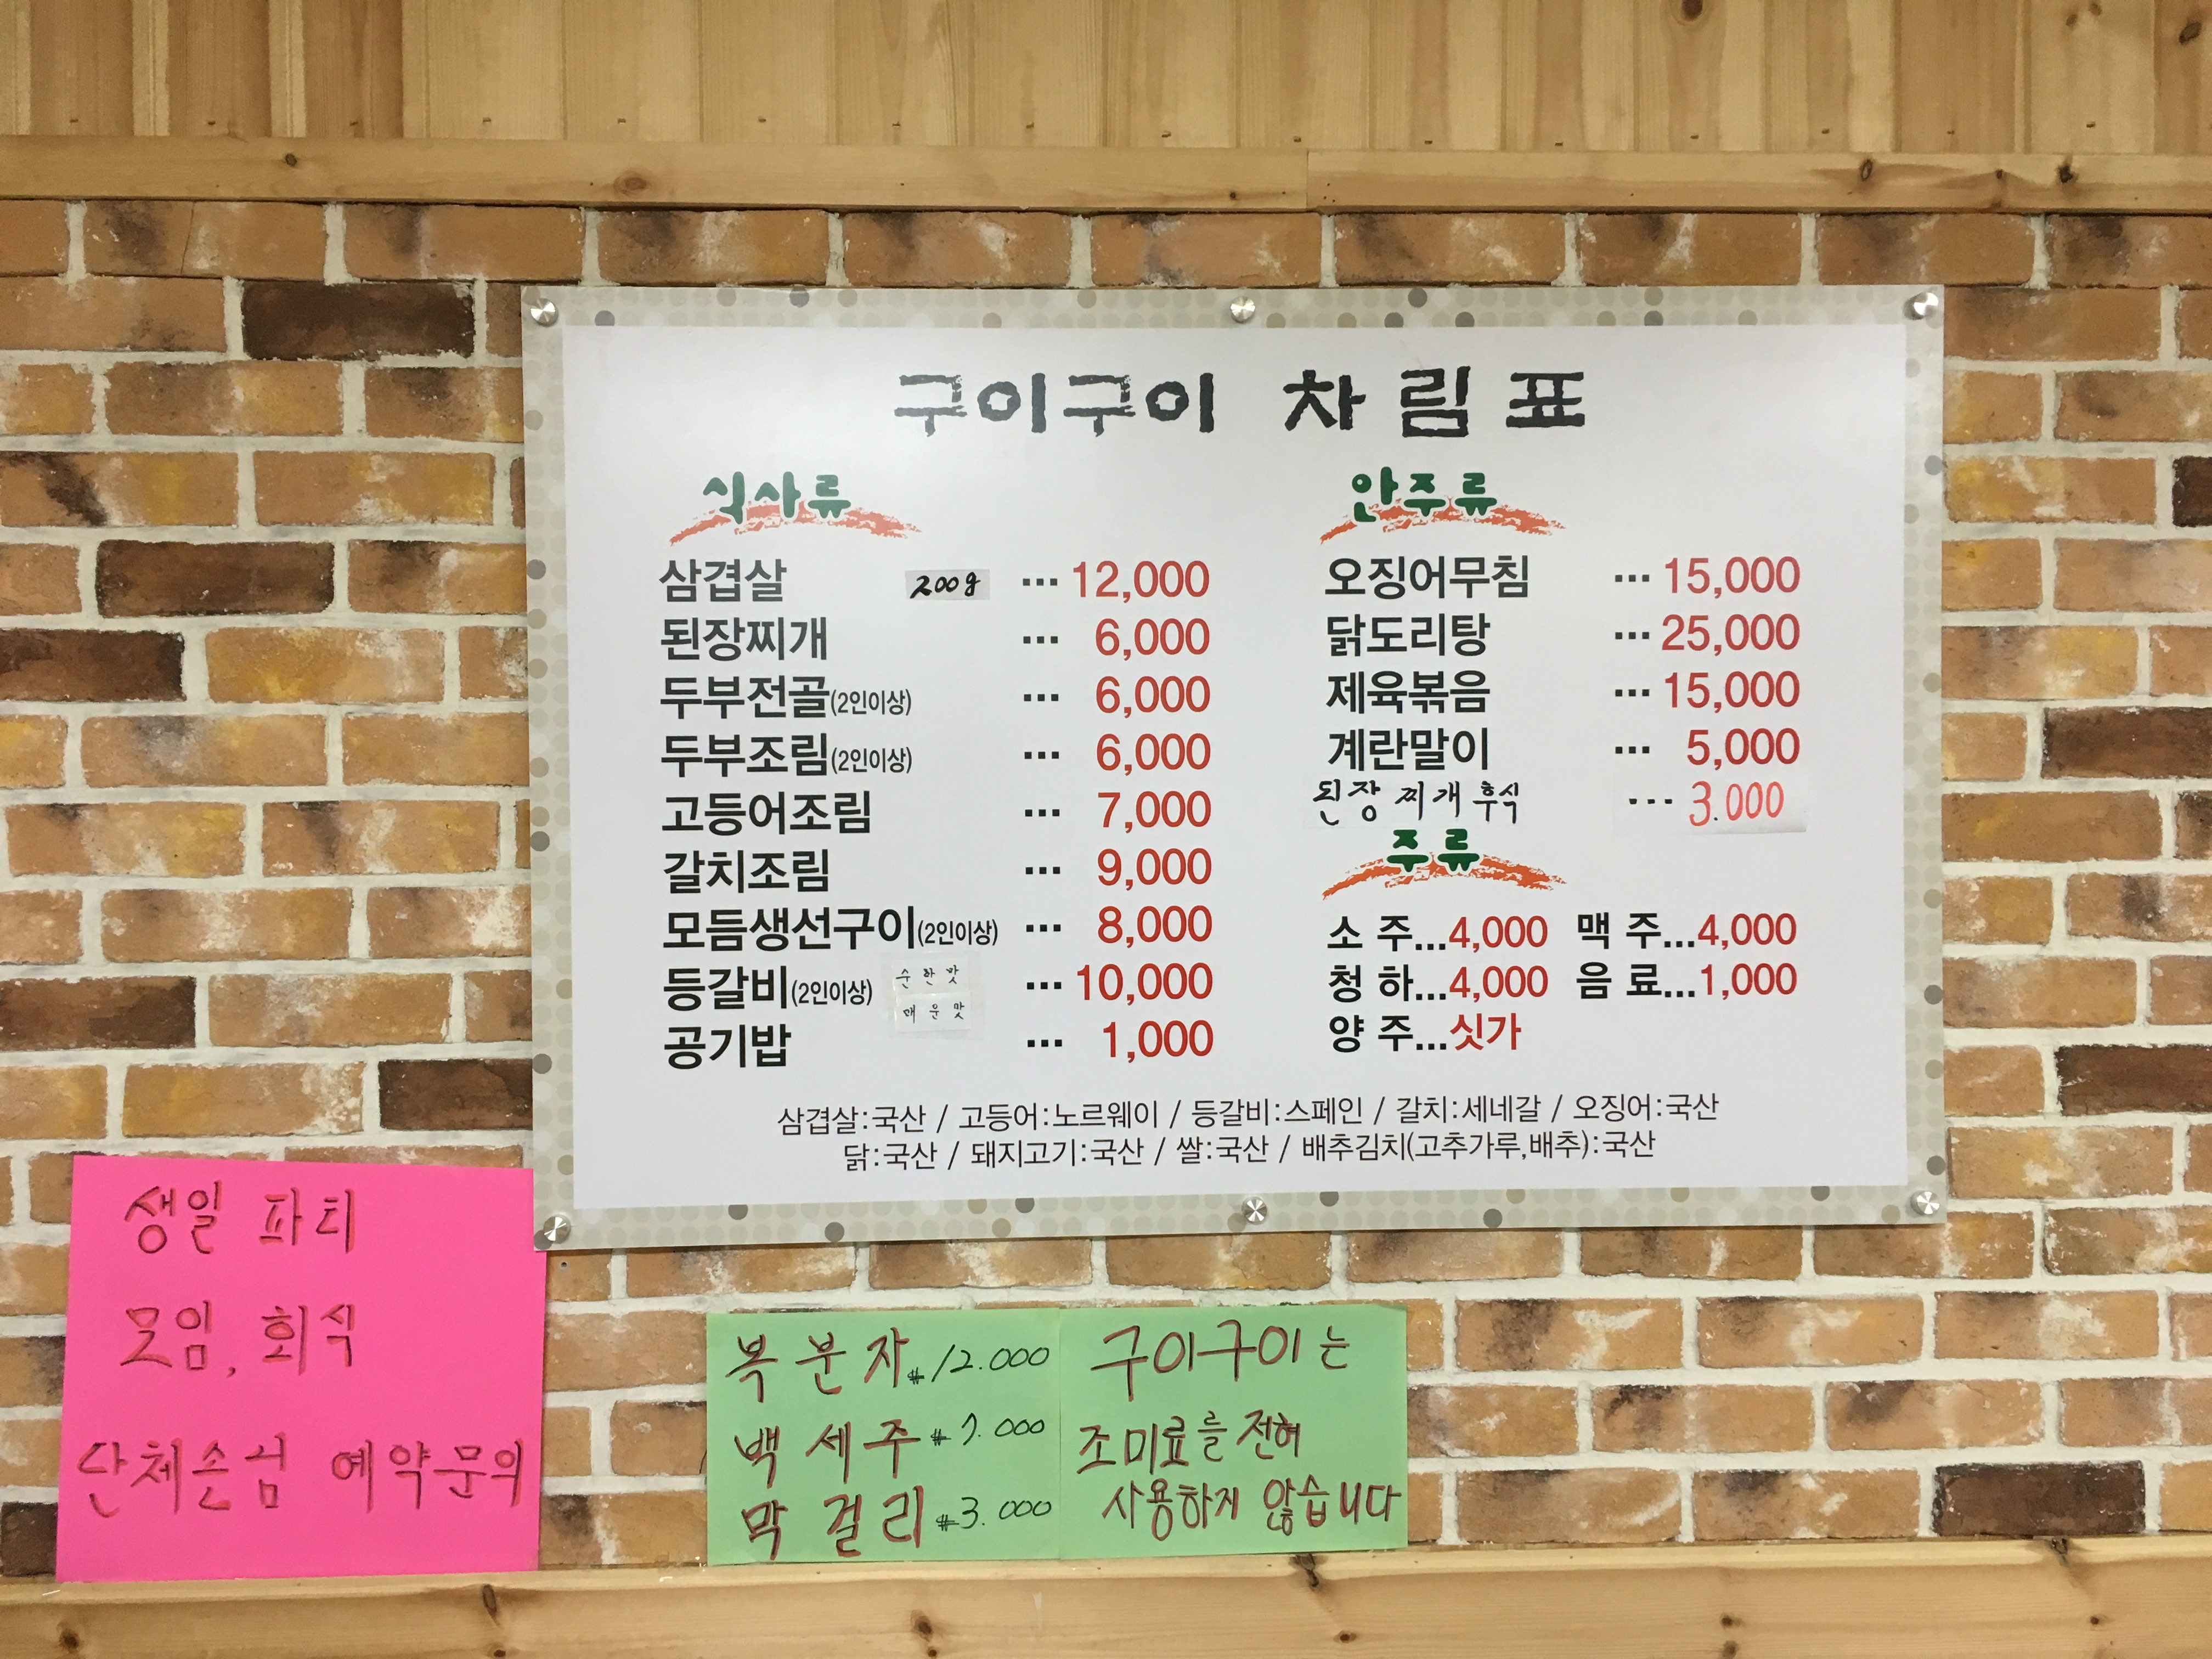 구이구이 차림표
식사류
삼겹살 200g ... 12,000
된장찌개 ... 6,000
두부전골(2인이상) ... 6,000
두부조림(2인이상) ... 6,000
고등어조림 ... 7,000
갈치조림 ... 9,000
모듬생선구이(2인이상) ... 8,000
등갈비(2인이상) 순한맛 매운맛 ... 10,000
공기밥 ... 1,000
안주류
오징어무침 ... 15,000
닭도리탕 ... 25,000
제육볶음 ... 15,000
계란말이 ... 5,000
된장찌개후식 ... 3.000
주류
소주...4,000 맥주...4,000
청하...4,000 음료...1,000
양주...싯가
삼겹살:국산 / 고등어:노르웨이 / 등갈비:스페인 / 갈치:세네갈 / 오징어:국산
닭:국산 / 돼지고기:국산 / 쌀:국산 / 배추김치(고추가루,배추):국산
생일 파티
모임, 회식
단체손님 예약문의
복분자 ₩12.000
백세주 ₩7.000
막걸리 ₩3.000
구이구이는
조미료를 전혀
사용하지 않습니다